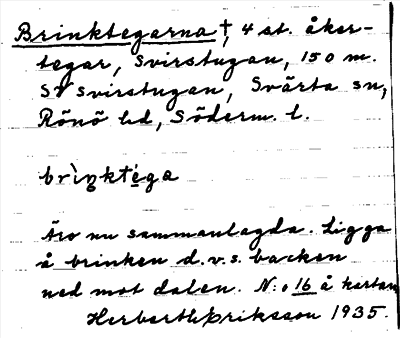 Brinktegarna †, 4 st. åker-
tegar, Svirstugan, 150 m.
SV Svirstugan, Svärta sn,
Rönö hd, Söderm. l.
brìŋktéga
Äro nu sammanlagda. Ligga
å brinken d.v.s. backen
ned mot dalen. N:o 16 å kartan
Herbert Eriksson 1935.